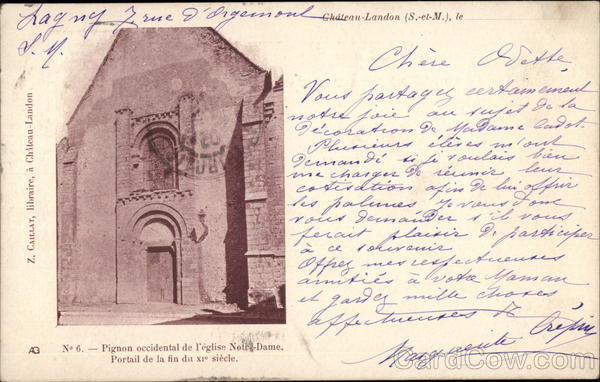 Lagny 7 rue d'Orgemont
S. M.
Château-Landon (S.-et-M.), le
Chère Odette
Vous partagez certainement
notre joie au sujet de la
décoration de Madame Cadot.
Plusieurs élèves m'ont
demandé si je voulais bien
me charger de réunir leur
cotisation afin de lui offrir
les palmes. Je vous donc
vous demander s'il vous
ferait plaisir de participer
à ce souvenir
Offrez mes respectueuses
amitiés à votre Maman
et gardez mille choses
affectueuses de
Marguerite Crépin
Z. CAILLAT, libraire, à Château-Landon
AB
N° 6. — Pignon occidental de l'église Notre-Dame.
Portail de la fin du XIe siècle.
CardCow.com